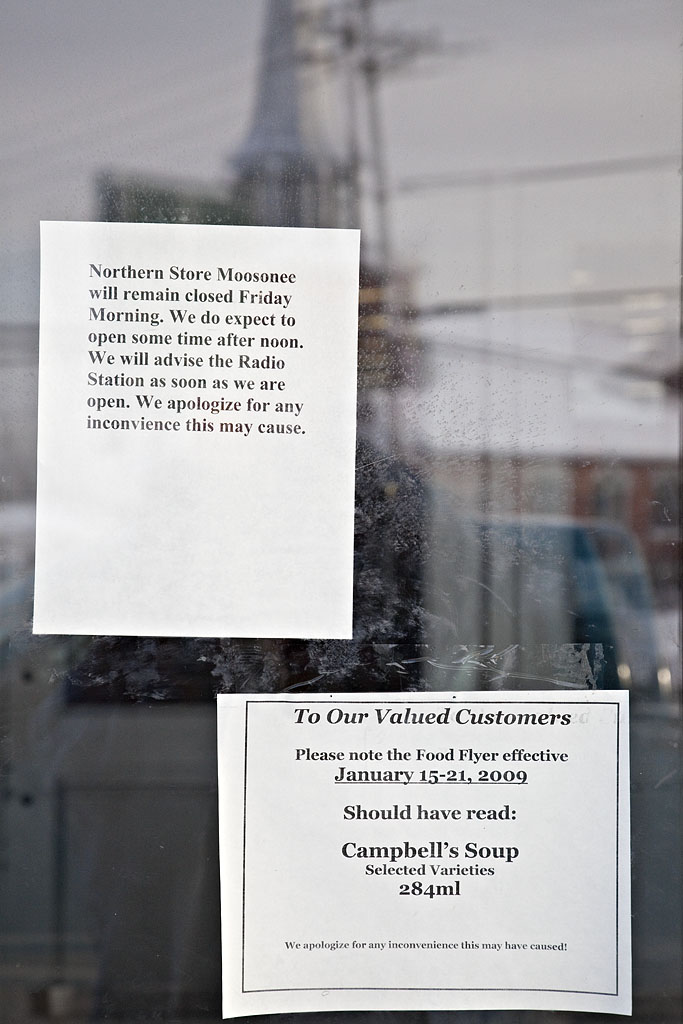 Northern Store Moosonee
will remain closed Friday
Morning. We do expect to
open some time after noon.
We will advise the Radio
Station as soon as we are
open. We apologize for any
inconvience this may cause.
To Our Valued Customers
Please note the Food Flyer effective
January 15-21, 2009
Should have read:
Campbell's Soup
Selected Varieties
284ml
We apologize for any inconvenience this may have caused!